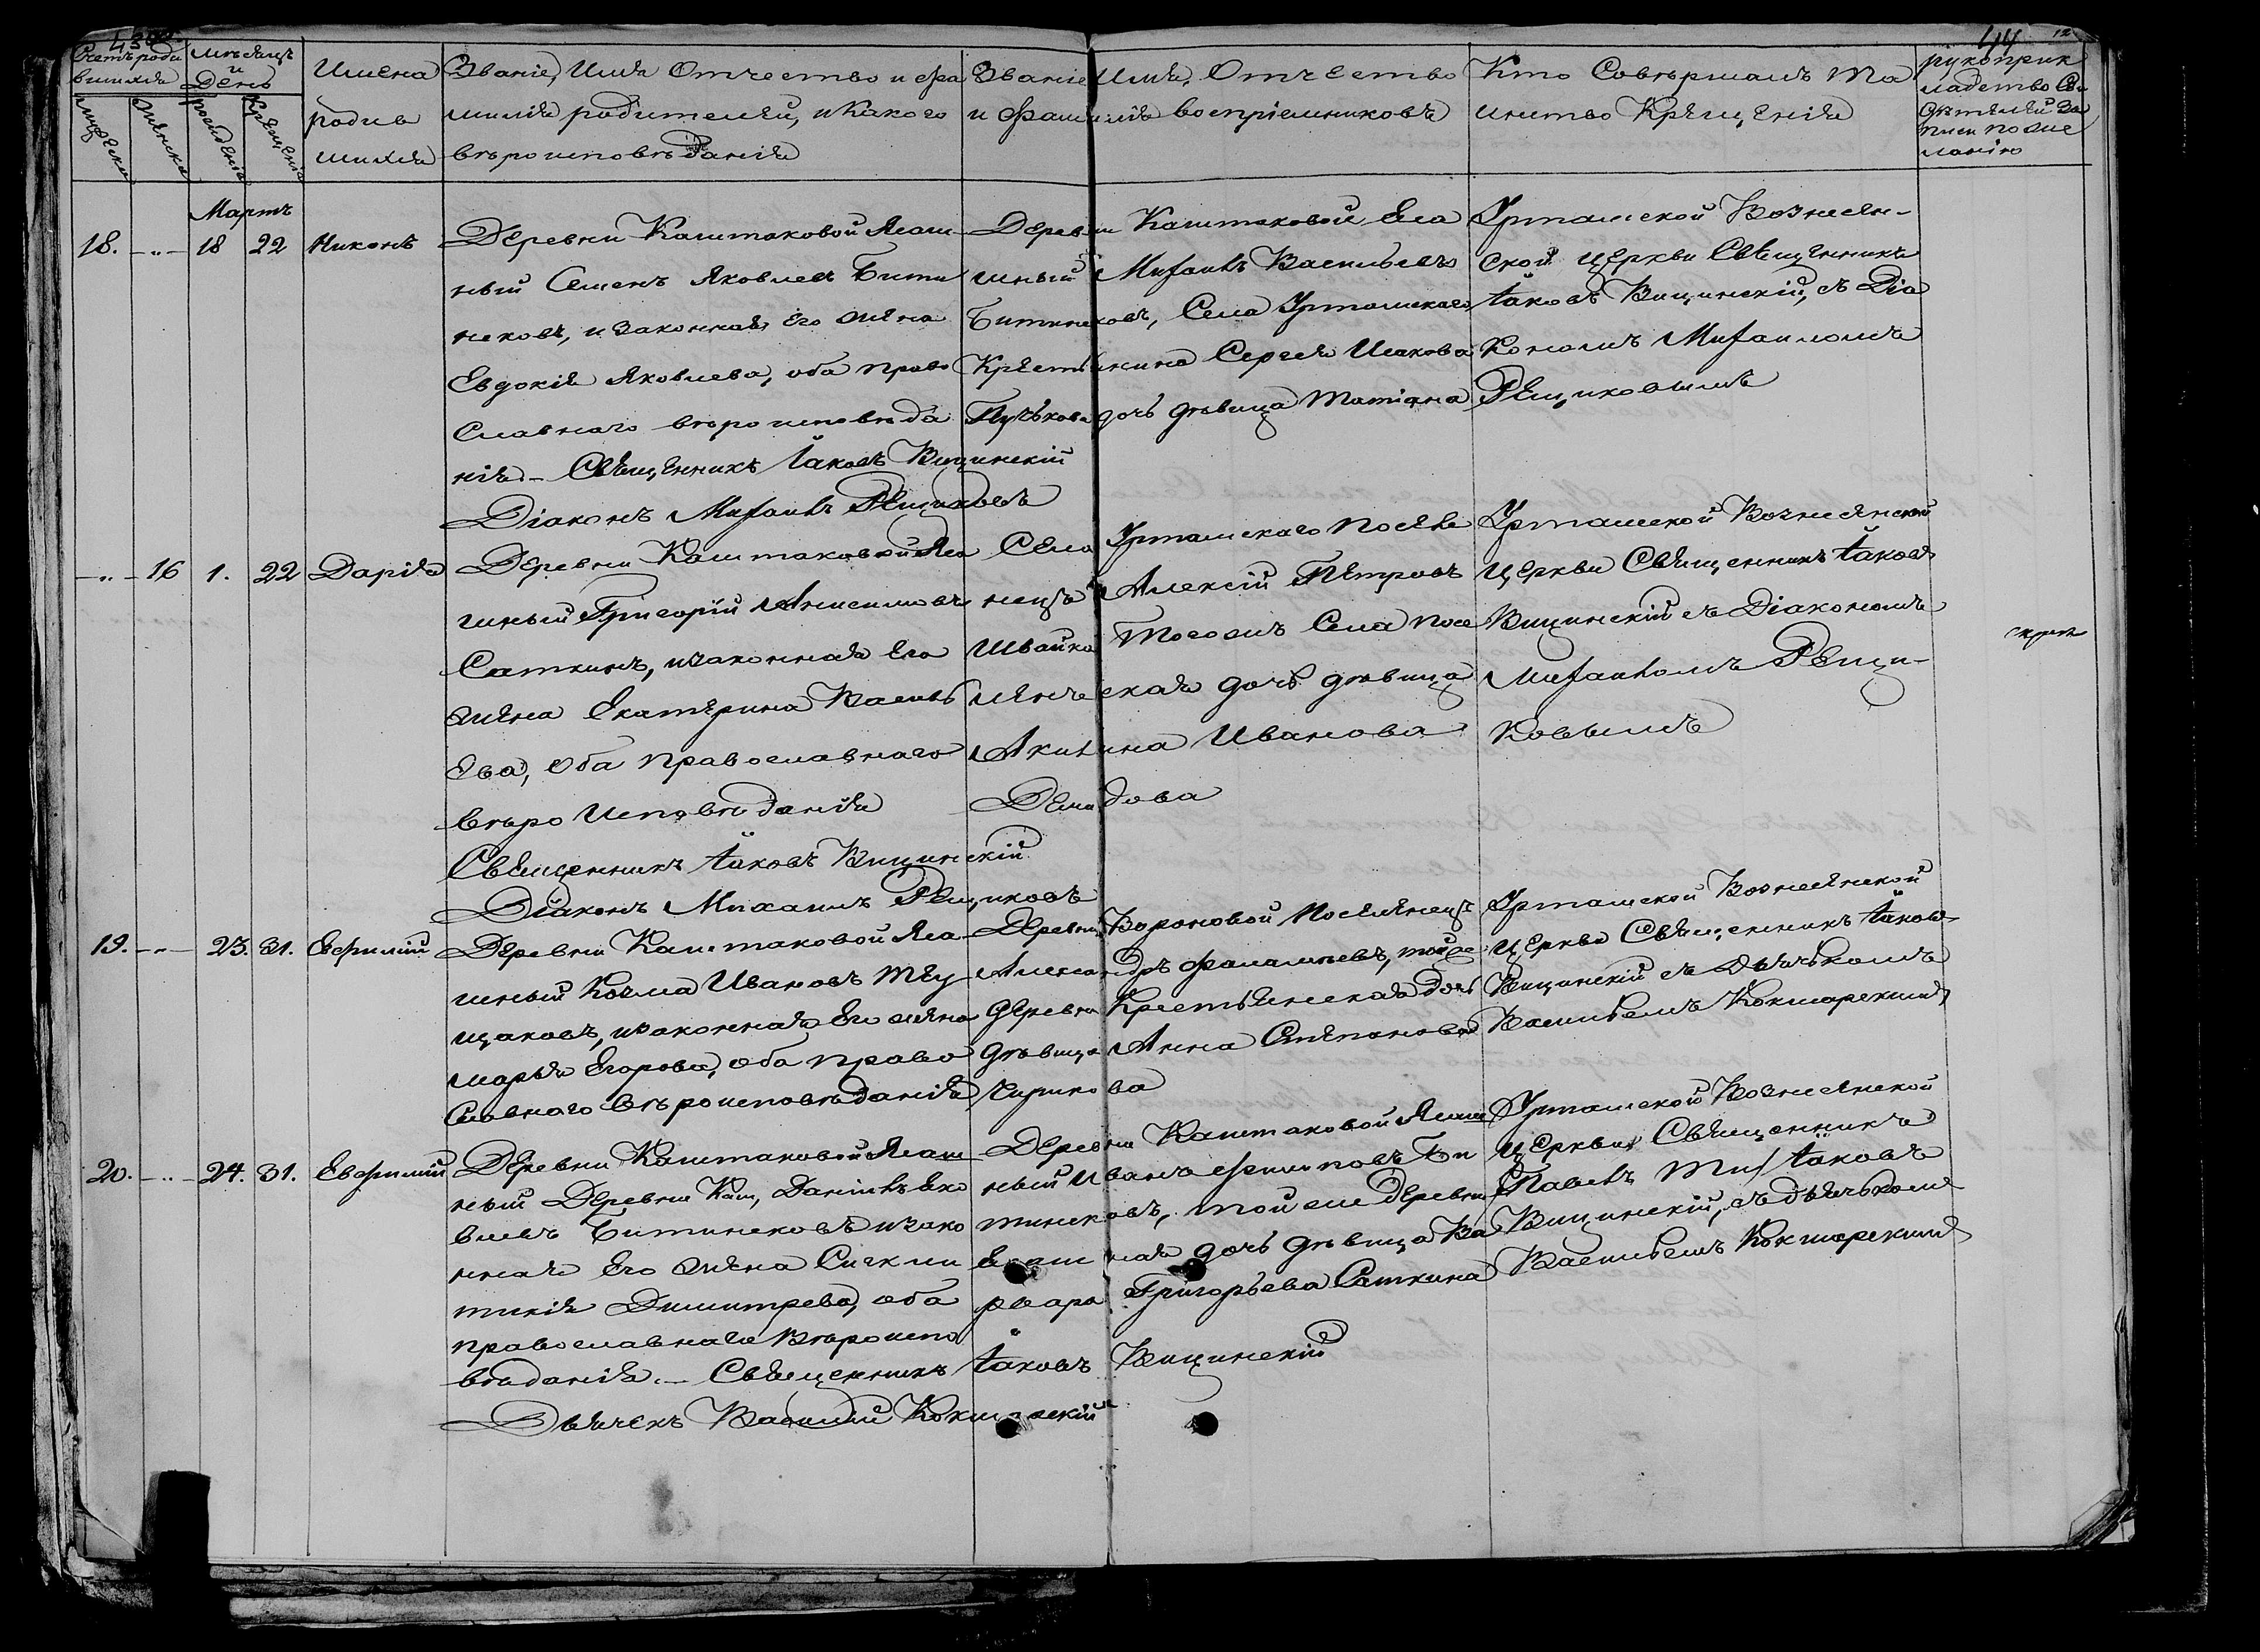 43об.
44
12
Счетъ роди
вшихся
Мѣсяцъ
и
День
мужеска
женска
рожденія
крещенія
Имена
родив
шихся
Званіе, Имя Отчество и Фа
милія родителей, и Какого
вѣроисповѣданія
Званіе Имя, Отчество
и Фамилія воспріемниковъ
Кто Совѣршалъ Та
инство Крещенія
рукоприк
ладство Сви
дѣтелей за
писи по же
ланію
Мартъ
18. -"- 18 22 Никонъ
Деревни Каштаковой Ясаш
ный Семенъ Яковлевъ Бити
нековъ, и законная Его жена
Евдокія Яковлева, оба право
славнаго вѣроисповѣда
нія. - Священникъ Іаковъ Вицинскій
Діаконъ Михаилъ Рещиковъ
Деревни Каштаковой Яса
шный Михаилъ Васильевъ
Битинековъ, Села Уртамскаго
Крестьянина Сергея Исакова
Пучькова дочь дѣвица Татіана
Уртамской Вознесен-
ской церкви Священникъ
Іаковъ Вицинскій, съ Діа
кономъ Михаиломъ
Рещиковымъ
-"- 16 1. 22 Дарія
Деревни Каштаковой Яса
шный Григорій Анисимовъ
Саткинъ, и законная Его
жена Екатерина Василь
Ева, Оба православнаго
вѣро Исповѣданія
Священникъ Іаковъ Вицинскій
Діаконъ Михаилъ Рещиковъ
Села Уртамскаго Посяле
нецъ Алексій Петровъ
Швайко Тогожъ Села посе
ленческая дочь дѣвица
Акилина Иванова
Демидова
Уртамской Вознесенской
церкви Священникъ Іаковъ
Вицинскій съ Діакономъ
Михаиломъ Рещи-
ковымъ
скреп
19. -"- 23. 31. Евфимій
Деревни Каштаковой Яса
шный Козма Ивановъ Тещ
щаковъ, и законная Его жена
Марья Егорова, оба право
Славнаго Вѣроисповѣданія
Деревни Вороновой Поселенецъ
Александръ Фаламѣевъ, той же
деревни Крестьянская дочь
дѣвица Анна Степанова
Чирикова
Уртамской Вознесенской
церкви Священникъ Іаковъ
Вицинскій съ Дьячькомъ
Васильемъ Кокшарскимъ
20. -"- 24. 31. Евфимій
Деревни Каштаковой Ясаш
ный Деревни Каш, Даніилъ Яко
влевъ Битинековъ и зако
нная Его жена Сикли
тикія Димитрева, оба
православнаго Вѣроиспо
вѣданія. - Священникъ Іаковъ Вицинскій
Дьячекъ Василій Кокшарскій
Деревни Каштаковой Ясаш
ный Иванъ Филиповъ Би
тинековъ, той же деревни
Ясашная дочь дѣвица Ва
рвара Григорьева Саткина
Уртамской Вознесенской
церкви Священникъ
Іаковъ
Вицинскій, съ дьячькомъ
Васильемъ Кокшарскимъ